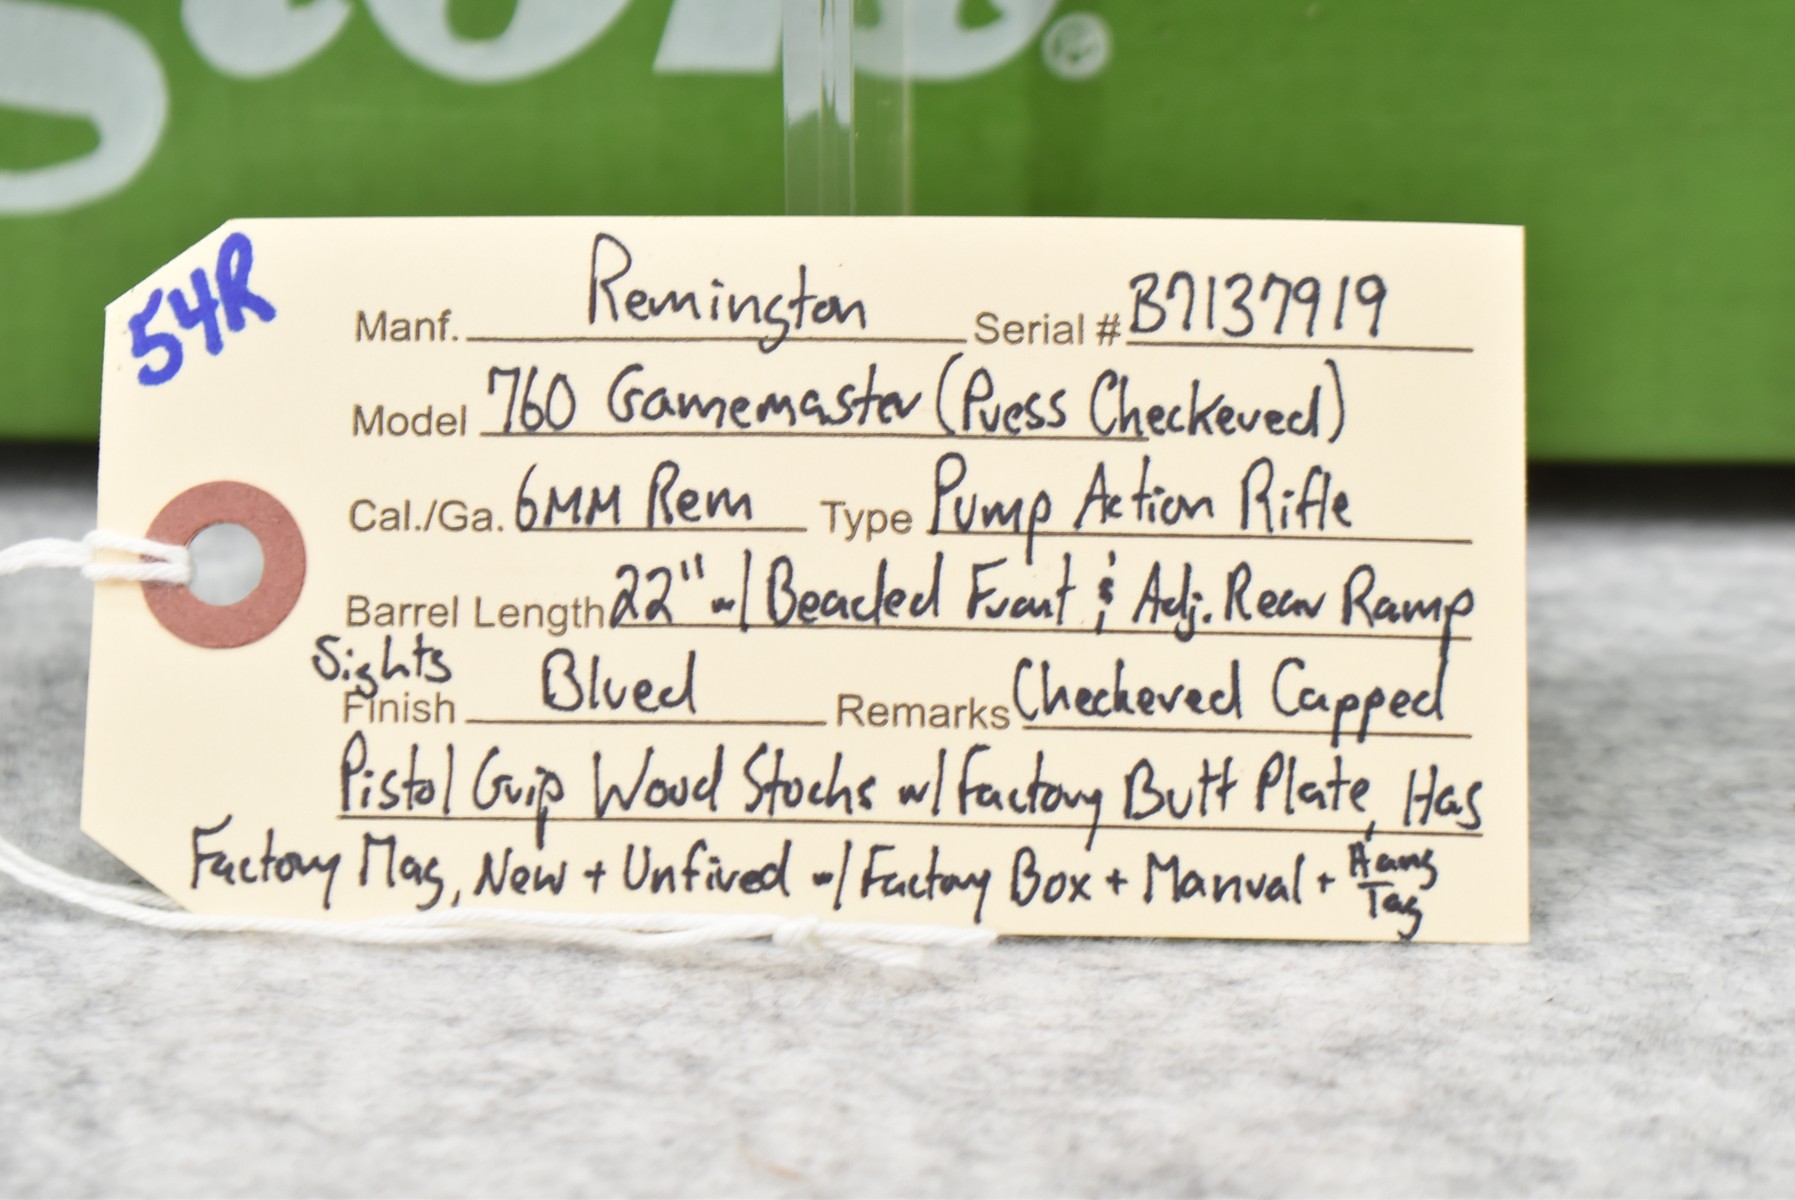 ®
54R
Manf. Remington Serial # B7137919
Model 760 Gamemaster (Press Checkered)
Cal./Ga. 6MM Rem Type Pump Action Rifle
Barrel Length 22" w/ Beaded Front & Adj. Rear Ramp
Sights
Finish Blued Remarks Checkered Capped
Pistol Grip Wood Stocks w/ Factory Butt Plate, Has
Factory Mag, New + Unfired w/ Factory Box + Manual + Hang
Tag